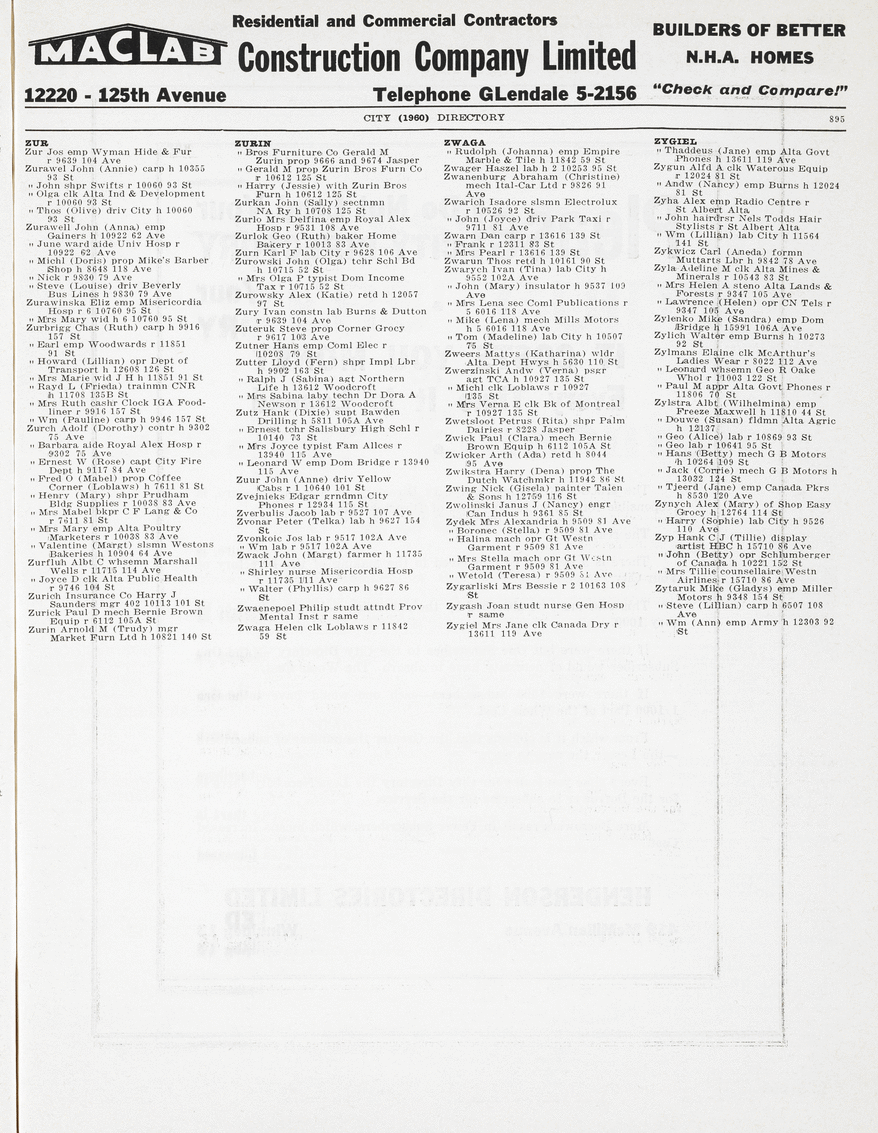 MACLAB
Residential and Commercial Contractors
Construction Company Limited
12220 - 125th Avenue
Telephone GLendale 5-2156
BUILDERS OF BETTER
N.H.A. HOMES
"Check and Compare!"
CITY (1960) DIRECTORY
895
ZUR
Zur Jos emp Wyman Hide & Fur
r 9639 104 Ave
Zurawel John (Annie) carp h 10355
93 St
" John shpr Swifts r 10060 93 St
" Olga clk Alta Ind & Development
r 10060 93 St
" Thos (Olive) driv City h 10060
93 St
Zurawell John (Anna) emp
Gainers h 10922 62 Ave
" June ward aide Univ Hosp r
10922 62 Ave
" Michl (Doris) prop Mike's Barber
Shop h 8648 118 Ave
" Nick r 9830 79 Ave
" Steve (Louise) driv Beverly
Bus Lines h 9830 79 Ave
Zurawinska Eliz emp Misericordia
Hosp r 6 10760 95 St
" Mrs Mary wid h 6 10760 95 St
Zurbrigg Chas (Ruth) carp h 9916
157 St
" Earl emp Woodwards r 11851
91 St
" Howard (Lillian) opr Dept of
Transport h 12608 126 St
" Mrs Marie wid J H h 11851 91 St
" Rayd L (Frieda) trainmn CNR
h 11708 135B St
" Mrs Ruth cashr Clock IGA Food-
liner r 9916 157 St
" Wm (Pauline) carp h 9946 157 St
Zurch Adolf (Dorothy) contr h 9302
75 Ave
" Barbara aide Royal Alex Hosp r
9302 75 Ave
" Ernest W (Rose) capt City Fire
Dept h 9117 84 Ave
" Fred O (Mabel) prop Coffee
Corner (Loblaws) h 7611 81 St
" Henry (Mary) shpr Prudham
Bldg Supplies r 10038 83 Ave
" Mrs Mabel bkpr C F Lang & Co
r 7611 81 St
" Mrs Mary emp Alta Poultry
Marketers r 10038 83 Ave
" Valentine (Margt) slsmn Westons
Bakeries h 10904 64 Ave
Zurfluh Albt C whsemn Marshall
Wells r 11715 114 Ave
" Joyce D clk Alta Public Health
r 9746 104 St
Zurich Insurance Co Harry J
Saunders mgr 402 10113 101 St
Zurick Paul D mech Bernie Brown
Equip r 6112 105A St
Zurin Arnold M (Trudy) mgr
Market Furn Ltd h 10821 140 St
ZURIN
" Bros Furniture Co Gerald M
Zurin prop 9666 and 9674 Jasper
" Gerald M prop Zurin Bros Furn Co
r 10612 125 St
" Harry (Jessie) with Zurin Bros
Furn h 10612 125 St
Zurkan John (Sally) sectnmn
NA Ry h 10708 125 St
Zurlo Mrs Delfina emp Royal Alex
Hosp r 9531 108 Ave
Zurlok Geo (Ruth) baker Home
Bakery r 10013 83 Ave
Zurn Karl F lab City r 9628 106 Ave
Zurowski John (Olga) tchr Schl Bd
h 10715 52 St
" Mrs Olga P typist Dom Income
Tax r 10715 52 St
Zurowsky Alex (Katie) retd h 12057
97 St
Zury Ivan constn lab Burns & Dutton
r 9639 104 Ave
Zuteruk Steve prop Corner Grocy
r 9617 103 Ave
Zutner Hans emp Coml Elec r
10208 79 St
Zutter Lloyd (Fern) shpr Impl Lbr
h 9902 163 St
" Ralph J (Sabina) agt Northern
Life h 13612 Woodcroft
" Mrs Sabina laby techn Dr Dora A
Newson r 13612 Woodcroft
Zutz Hank (Dixie) supt Bawden
Drilling h 5811 105A Ave
" Ernest tchr Salisbury High Schl r
10140 73 St
" Mrs Joyce typist Fam Allces r
13940 115 Ave
" Leonard W emp Dom Bridge r 13940
115 Ave
Zuur John (Anne) driv Yellow
Cabs r 1 10640 101 St
Zvejnieks Edgar grndmn City
Phones r 12934 115 St
Zverbulis Jacob lab r 9527 107 Ave
Zvonar Peter (Telka) lab h 9627 154
St
Zvonkoic Jos lab r 9517 102A Ave
" Wm lab r 9517 102A Ave
Zwack John (Margt) farmer h 11735
111 Ave
" Shirley nurse Misericordia Hosp
r 11735 111 Ave
" Walter (Phyllis) carp h 9627 86
St
Zwaenepoel Philip studt attndt Prov
Mental Inst r same
Zwaga Helen clk Loblaws r 11842
59 St
ZWAGA
" Rudolph (Johanna) emp Empire
Marble & Tile h 11842 59 St
Zwager Haszel lab h 2 10253 95 St
Zwanenburg Abraham (Christine)
mech Ital-Car Ltd r 9826 91
Ave
Zwarich Isadore slsmn Electrolux
r 10526 92 St
" John (Joyce) driv Park Taxi r
9711 81 Ave
Zwarn Dan carp r 13616 139 St
" Frank r 12311 83 St
" Mrs Pearl r 13616 139 St
Zwarun Thos retd h 10161 90 St
Zwarych Ivan (Tina) lab City h
9552 102A Ave
" John (Mary) insulator h 9537 109
Ave
" Mrs Lena sec Coml Publications r
5 6016 118 Ave
" Mike (Lena) mech Mills Motors
h 5 6016 118 Ave
" Tom (Madeline) lab City h 10507
75 St
Zweers Mattys (Katharina) wldr
Alta Dept Hwys h 5630 110 St
Zwerzinski Andw (Verna) psgr
agt TCA h 10927 135 St
" Michl clk Loblaws r 10927
135 St
" Mrs Verna E clk Bk of Montreal
r 10927 135 St
Zwetsloot Petrus (Rita) shpr Palm
Dairies r 8228 Jasper
Zwick Paul (Clara) mech Bernie
Brown Equip h 6112 105A St
Zwicker Arth (Ada) retd h 8044
95 Ave
Zwikstra Harry (Dena) prop The
Dutch Watchmkr h 11942 86 St
Zwing Nick (Gisela) painter Talen
& Sons h 12759 116 St
Zwolinski Janus J (Nancy) engr
Can Indus h 9361 85 St
Zydek Mrs Alexandria h 9509 81 Ave
" Boronec (Stella) r 9509 81 Ave
" Halina mach opr Gt Westn
Garment r 9509 81 Ave
" Mrs Stella mach opr Gt Westn
Garment r 9509 81 Ave
" Wetold (Teresa) r 9509 81 Ave
Zygarliski Mrs Bessie r 2 10163 108
St
Zygash Joan studt nurse Gen Hosp
r same
Zygiel Mrs Jane clk Canada Dry r
13611 119 Ave
ZYGIEL
" Thaddeus (Jane) emp Alta Govt
Phones h 13611 119 Ave
Zygun Alfd A clk Waterous Equip
r 12024 81 St
" Andw (Nancy) emp Burns h 12024
81 St
Zyha Alex emp Radio Centre r
St Albert Alta
" John hairdrsr Nels Todds Hair
Stylists r St Albert Alta
" Wm (Lillian) lab City h 11564
141 St
Zykwicz Carl (Aneda) formn
Muttarts Lbr h 9842 78 Ave
Zyla Adeline M clk Alta Mines &
Minerals r 10543 83 St
" Mrs Helen A steno Alta Lands &
Forests r 9347 105 Ave
" Lawrence (Helen) opr CN Tels r
9347 105 Ave
Zylenko Mike (Sandra) emp Dom
Bridge h 15991 106A Ave
Zylich Walter emp Burns h 10273
92 St
Zylmans Elaine clk McArthur's
Ladies Wear r 8022 112 Ave
" Leonard whsemn Geo R Oake
Whol r 11003 122 St
" Paul M appr Alta Govt Phones r
11806 70 St
Zylstra Albt (Wilhelmina) emp
Freeze Maxwell h 11810 44 St
" Douwe (Susan) fldmn Alta Agric
h 12137
" Geo (Alice) lab r 10869 93 St
" Geo lab r 10641 95 St
" Hans (Betty) mech G B Motors
h 10264 109 St
" Jack (Corrie) mech G B Motors h
13032 124 St
" Tjeerd (Jane) emp Canada Pkrs
h 8530 120 Ave
Zynych Alex (Mary) of Shop Easy
Grocy h 12764 114 St
" Harry (Sophie) lab City h 9526
110 Ave
Zyp Hank C J (Tillie) display
artist HBC h 15710 86 Ave
" John (Betty) opr Schlumberger
of Canada h 10221 152 St
" Mrs Tillie counsellaire Westn
Airlines r 15710 86 Ave
Zytaruk Mike (Gladys) emp Miller
Motors h 9348 154 St
" Steve (Lillian) carp h 6507 108
Ave
" Wm (Ann) emp Army h 12303 92
St